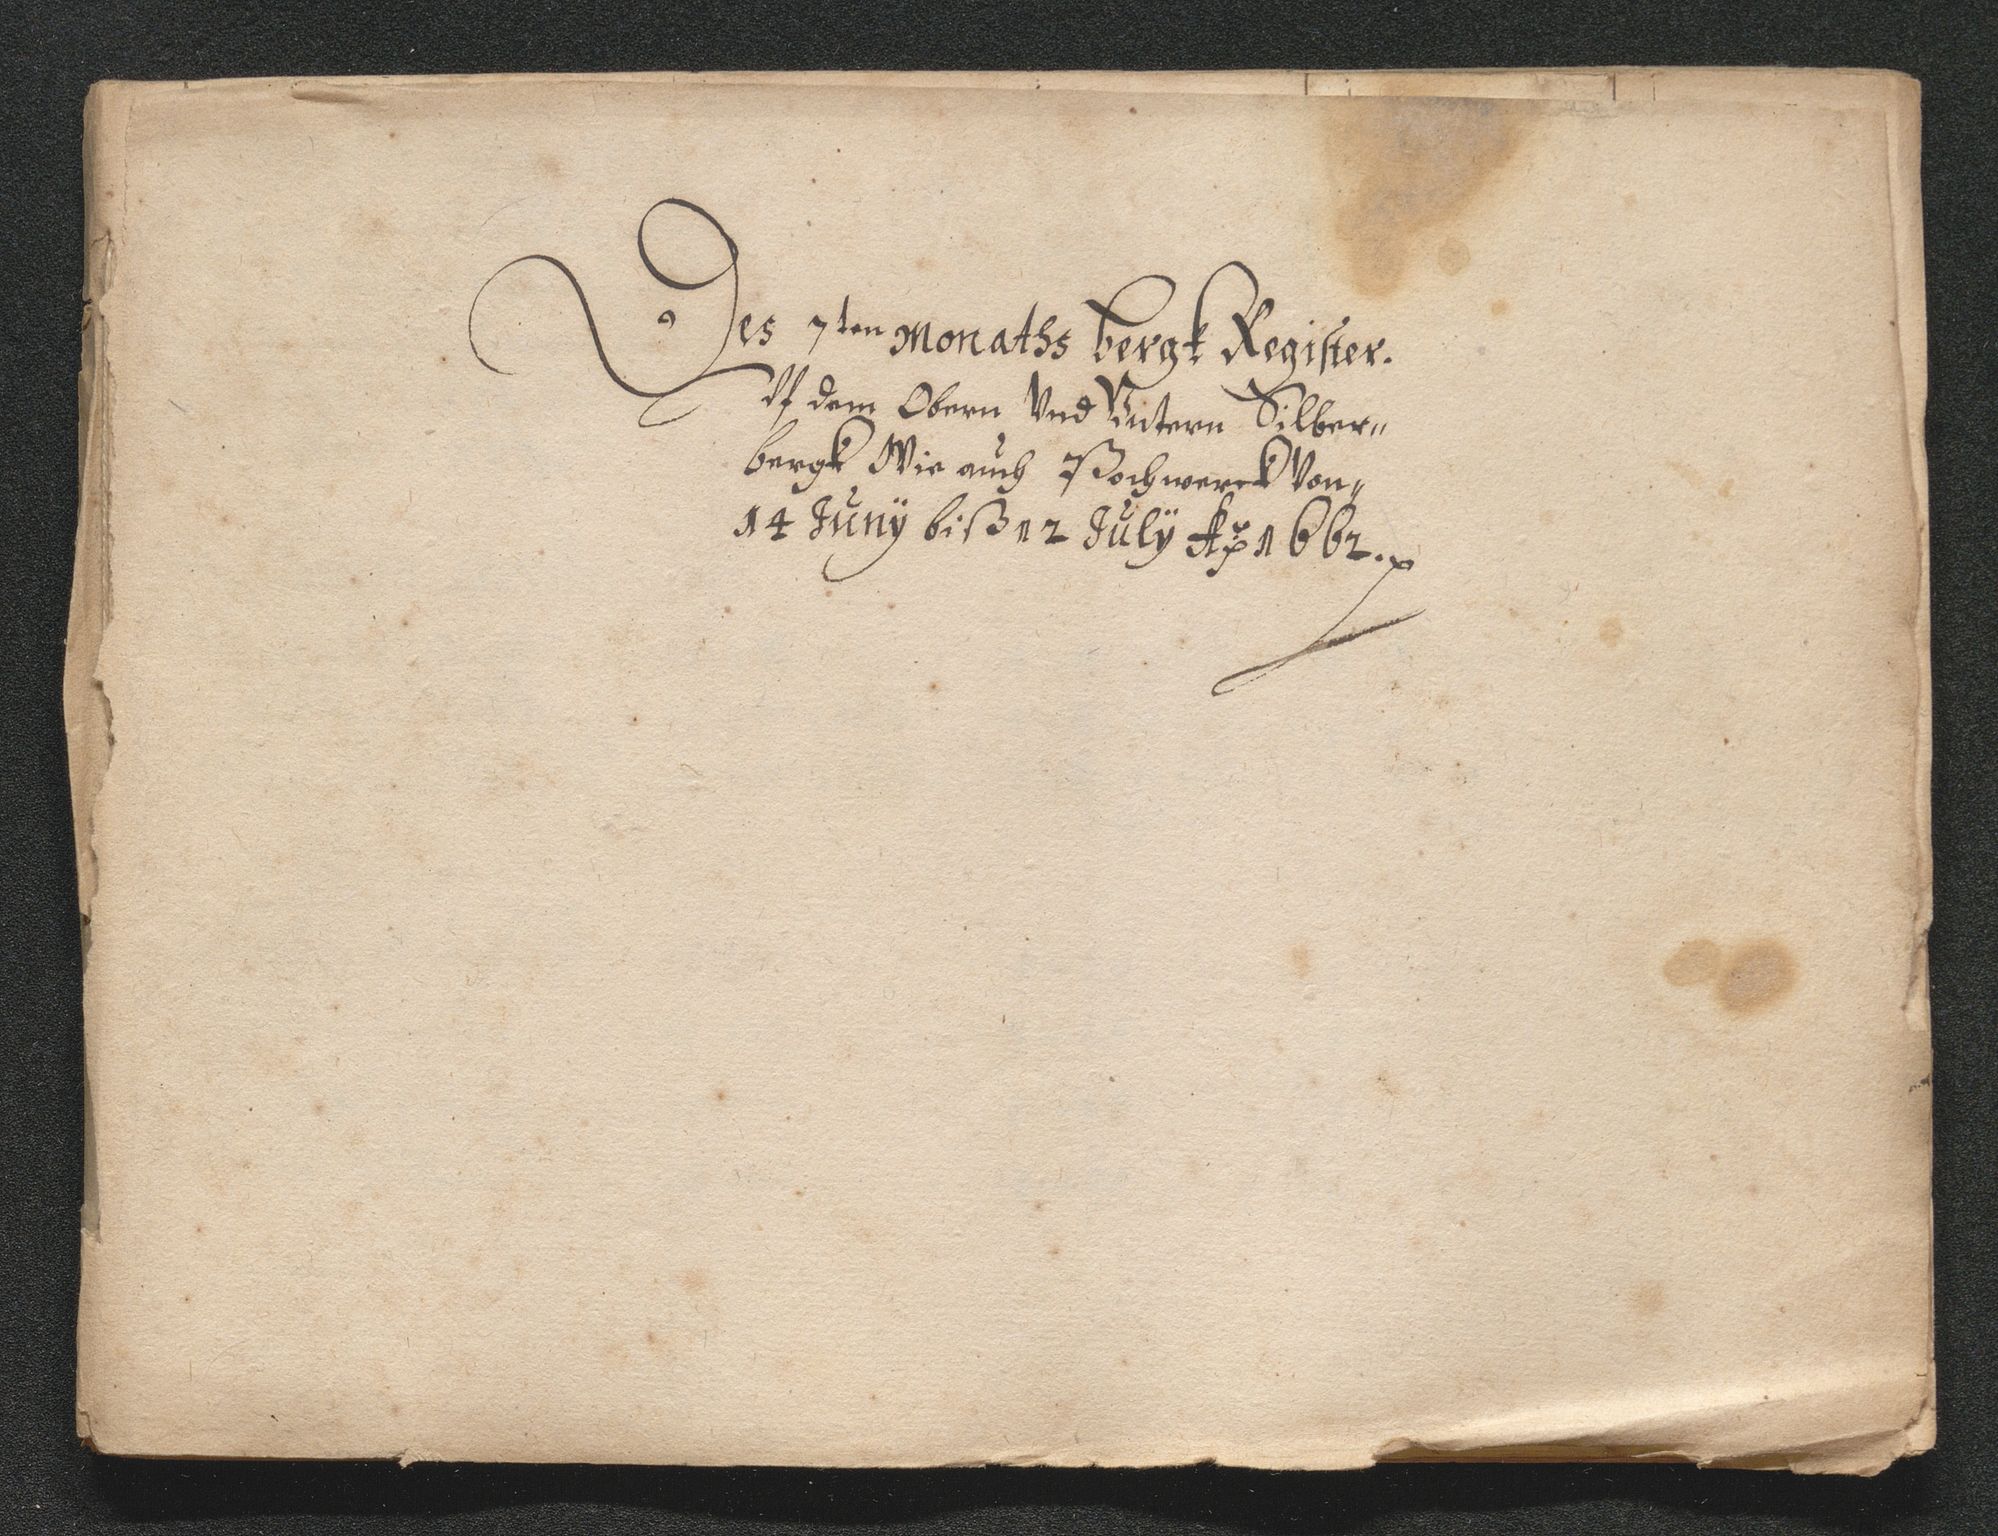 Des 7ten Monaths bergk Register.
Vf dem Obern Vnd Vntern Silber„
bergk Wie auch Pochwerck Von„
14 Junÿ biß 12 Julÿ Ao 1662.